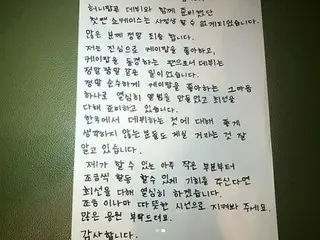 허니팝콘 데뷔와 함께 준비했던
첫번째 쇼케이스는 사정상 할 수 없게되었습니다.
많은 분께 정말 죄송 합니다.
저는 진심으로 케이팝을 좋아하고,
케이팝을 동경하는 팬으로서 데뷔는
정말 꿈같은 일이 없습니다.
정말 순수하게 케이팝을 좋아하는 그마음
하나로 열심히 앨범을 만들었고 최선을
다해 준비하고 있습니다.
한국에서 데뷔하는 것에 대해 좋게
생각하지 않는 분들도 계실 거라는 것 잘
알고 있습니다.
제가 할 수 있는 아주 작은 부분부터
조금씩 활동 할 수 있게 기회를 주신다면
최선을 다해 열심히 하겠습니다.
조금 이나마 따뜻한 시선으로 지켜봐 주세요.
많은 응원 부탁드려요.
감사합니다.